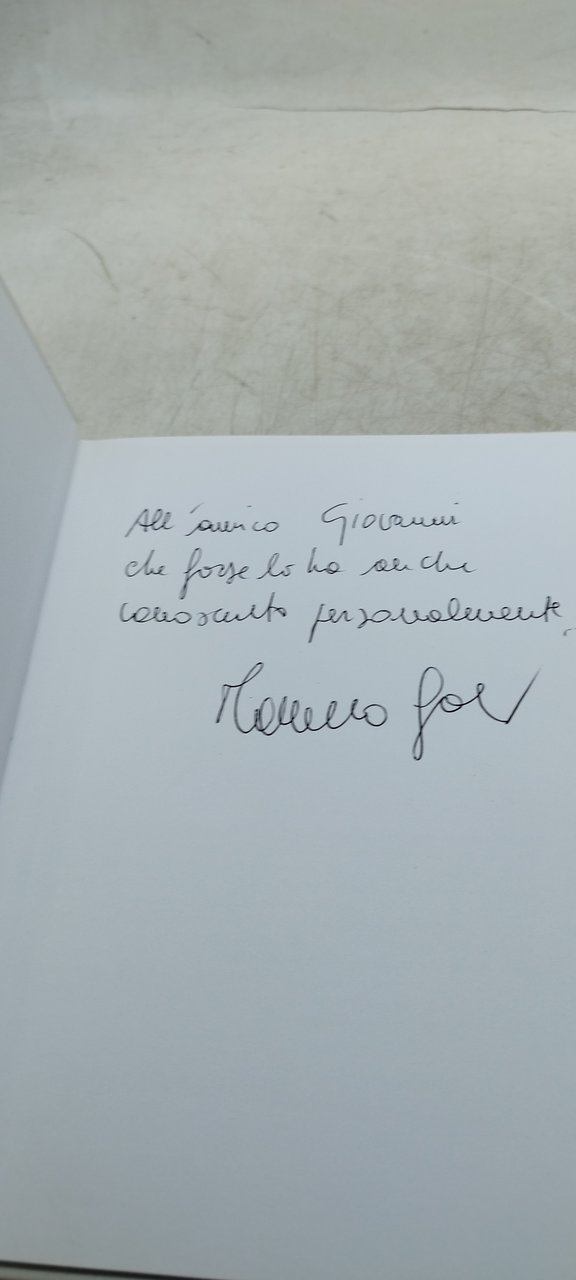 All'amico Giovanni
che forse lo ha anche
conosciuto personalmente.